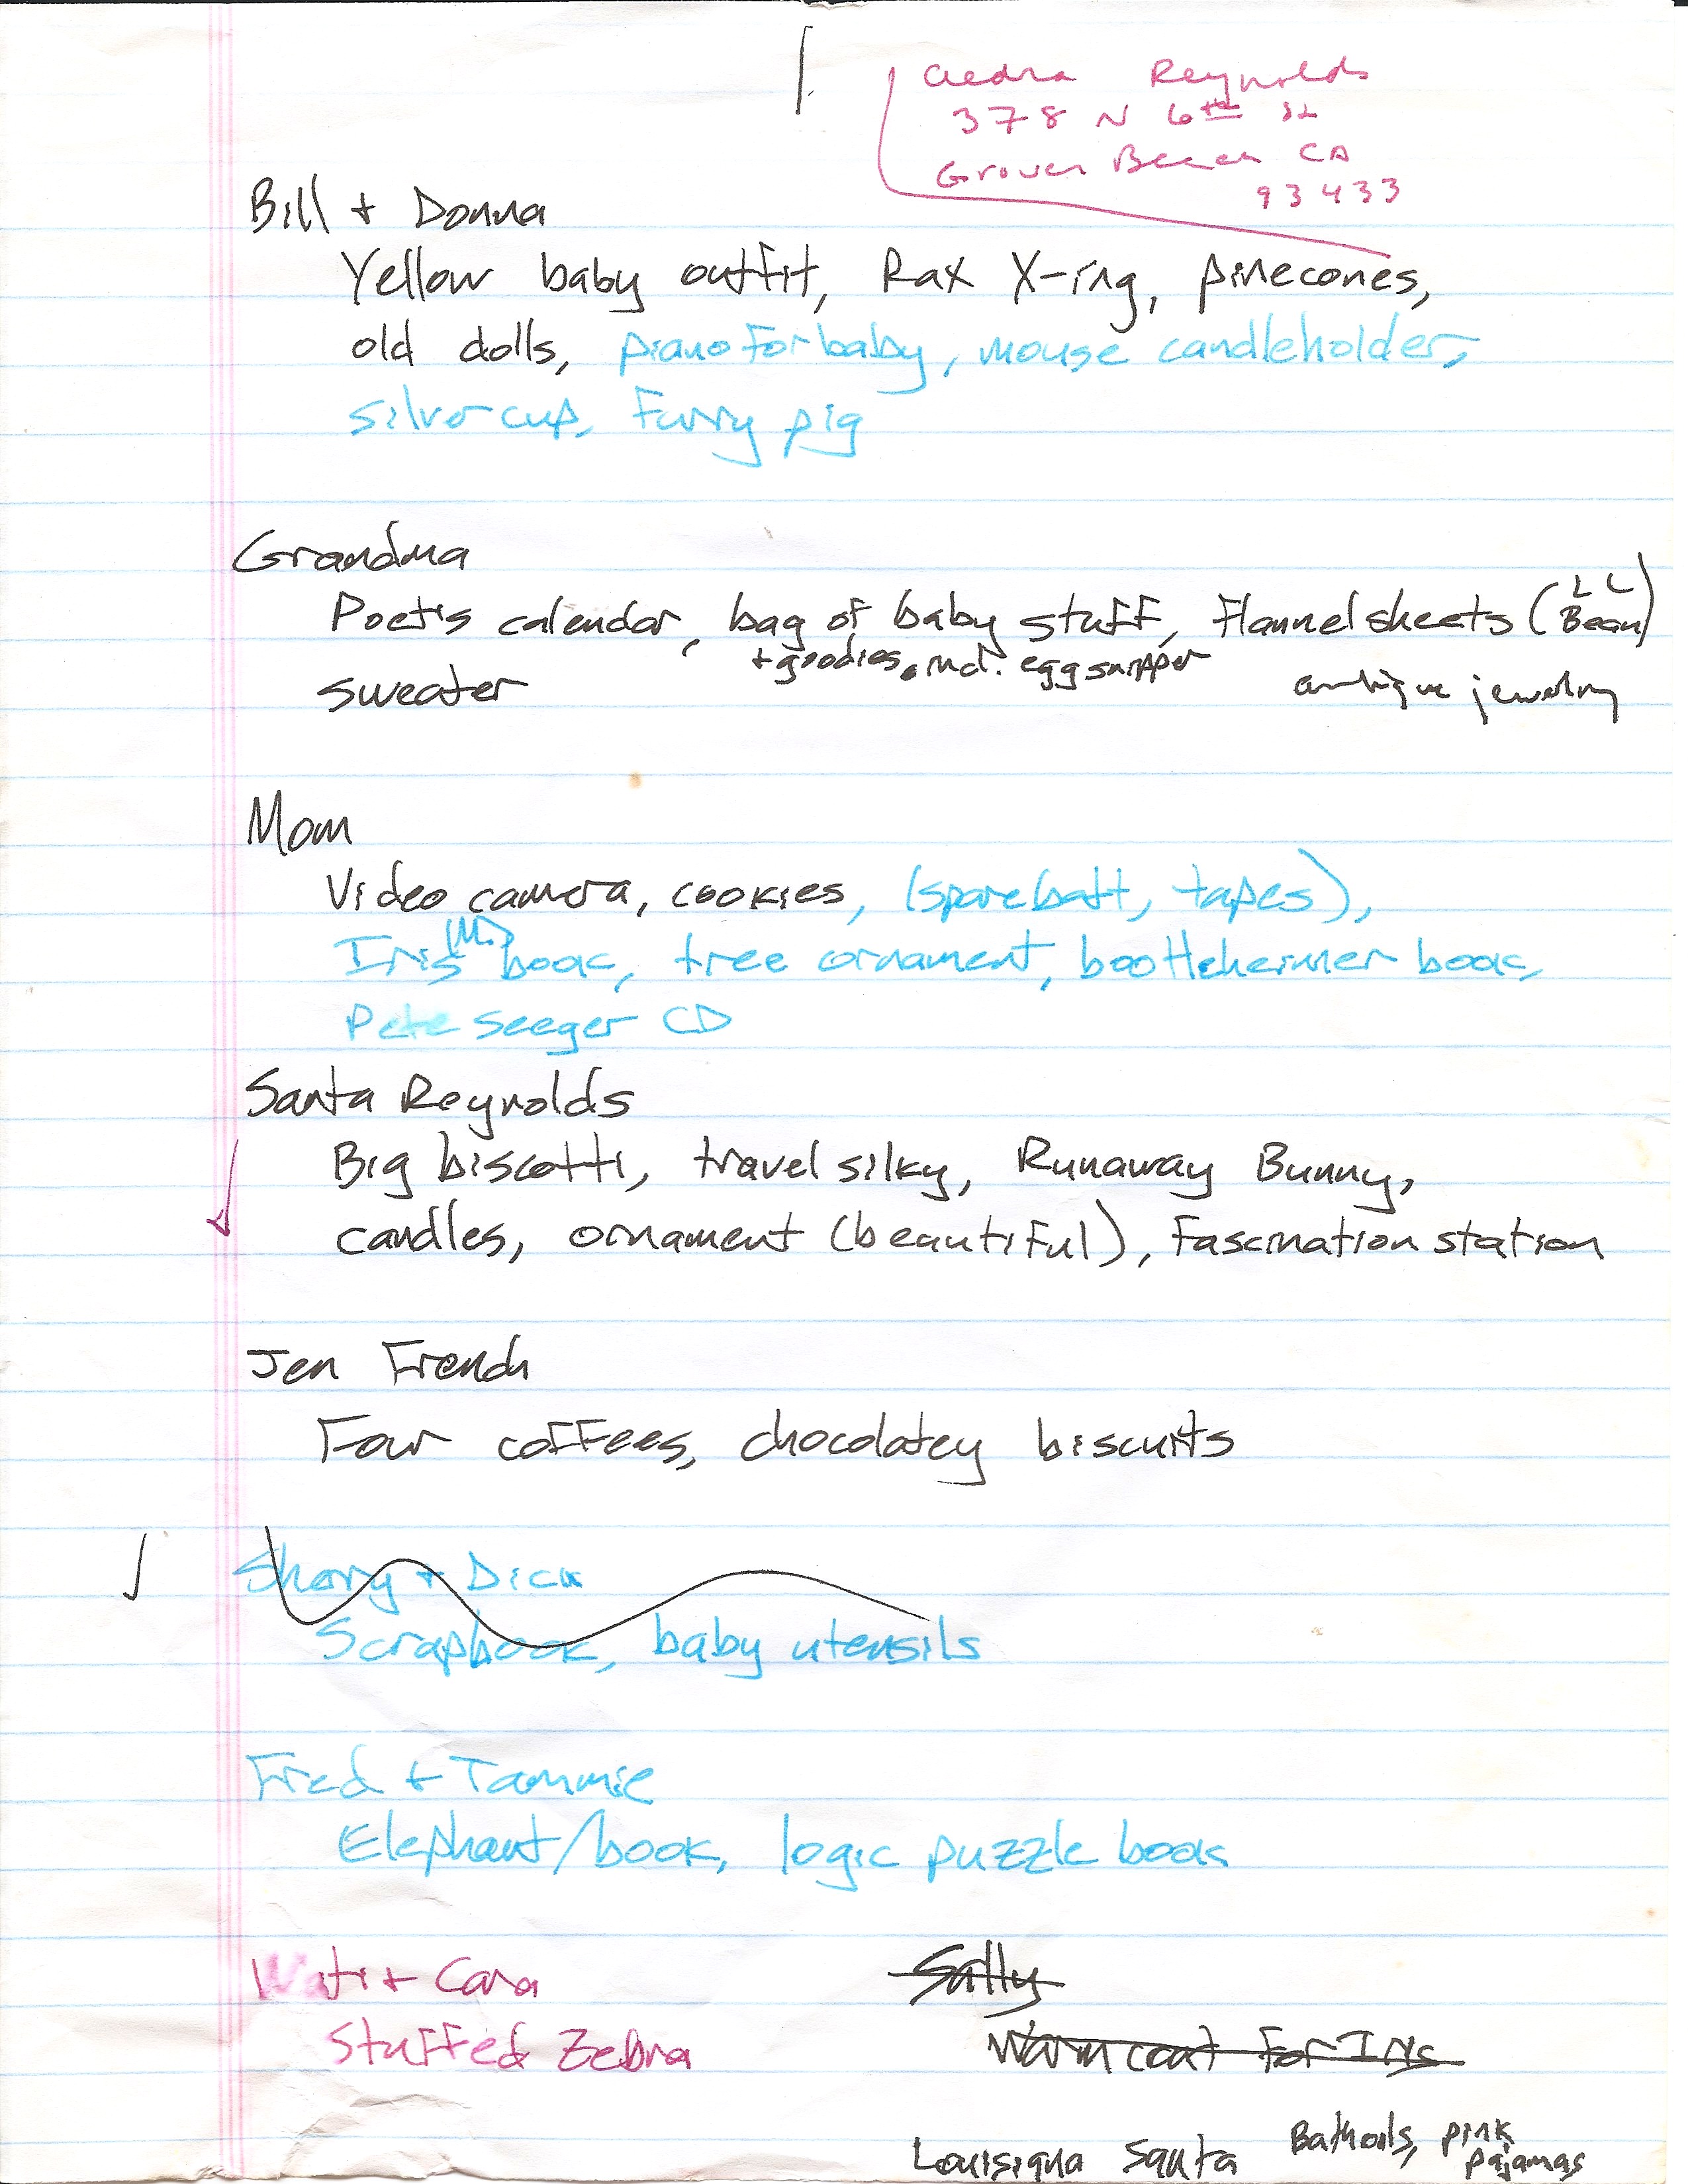 Reynolds
378 N 6th St
Grover Beach CA
93433
Bill + Donna
Yellow baby outfit, Rax X-ing, pinecones,
old dolls, piano for baby, mouse candleholder,
silver cup, Furry pig
Grandma
Poet's calendar, bag of baby stuff, Flannel sheets (LL Bean)
+ goodies, incl. egg snipper
sweater antique jewelry
Mom
Video camera, cookies, (spare batt, tapes),
Iris (M.) book, tree ornament, book,
Pete Seeger CD
Santa Reynolds
Big biscotti, travel silky, Runaway Bunny,
candles, ornament (beautiful), Fascination station
Jen French
Four coffees, chocolatey biscuits
+ Dick
Scrapbook, baby utensils
Fred + Tammie
Elephant/book, logic puzzle book
+ Cara
Stuffed Zebra
Sally
Warm coat for Iris
Louisiana Santa Bath oils, pink
pajamas